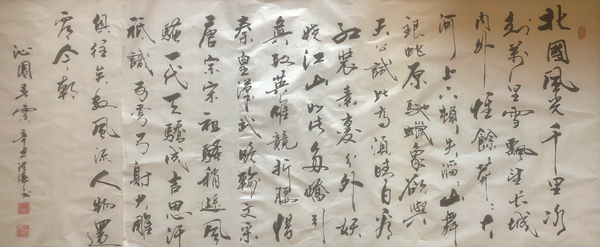 北國風光千里冰
封萬里雪飄望長城
内外惟餘莽莽大
河上下頓失滔滔山舞
銀蛇原馳蠟象欲與
天公試比高須晴日看
紅裝素裹分外妖
嬈江山如此多嬌引
無數英雄競折腰惜
秦皇漢武略輸文采
唐宗宋祖稍遜風
騷一代天驕成吉思汗
祇識彎弓射大雕
俱往矣數風流人物還
看今朝
沁園春雪辛丑